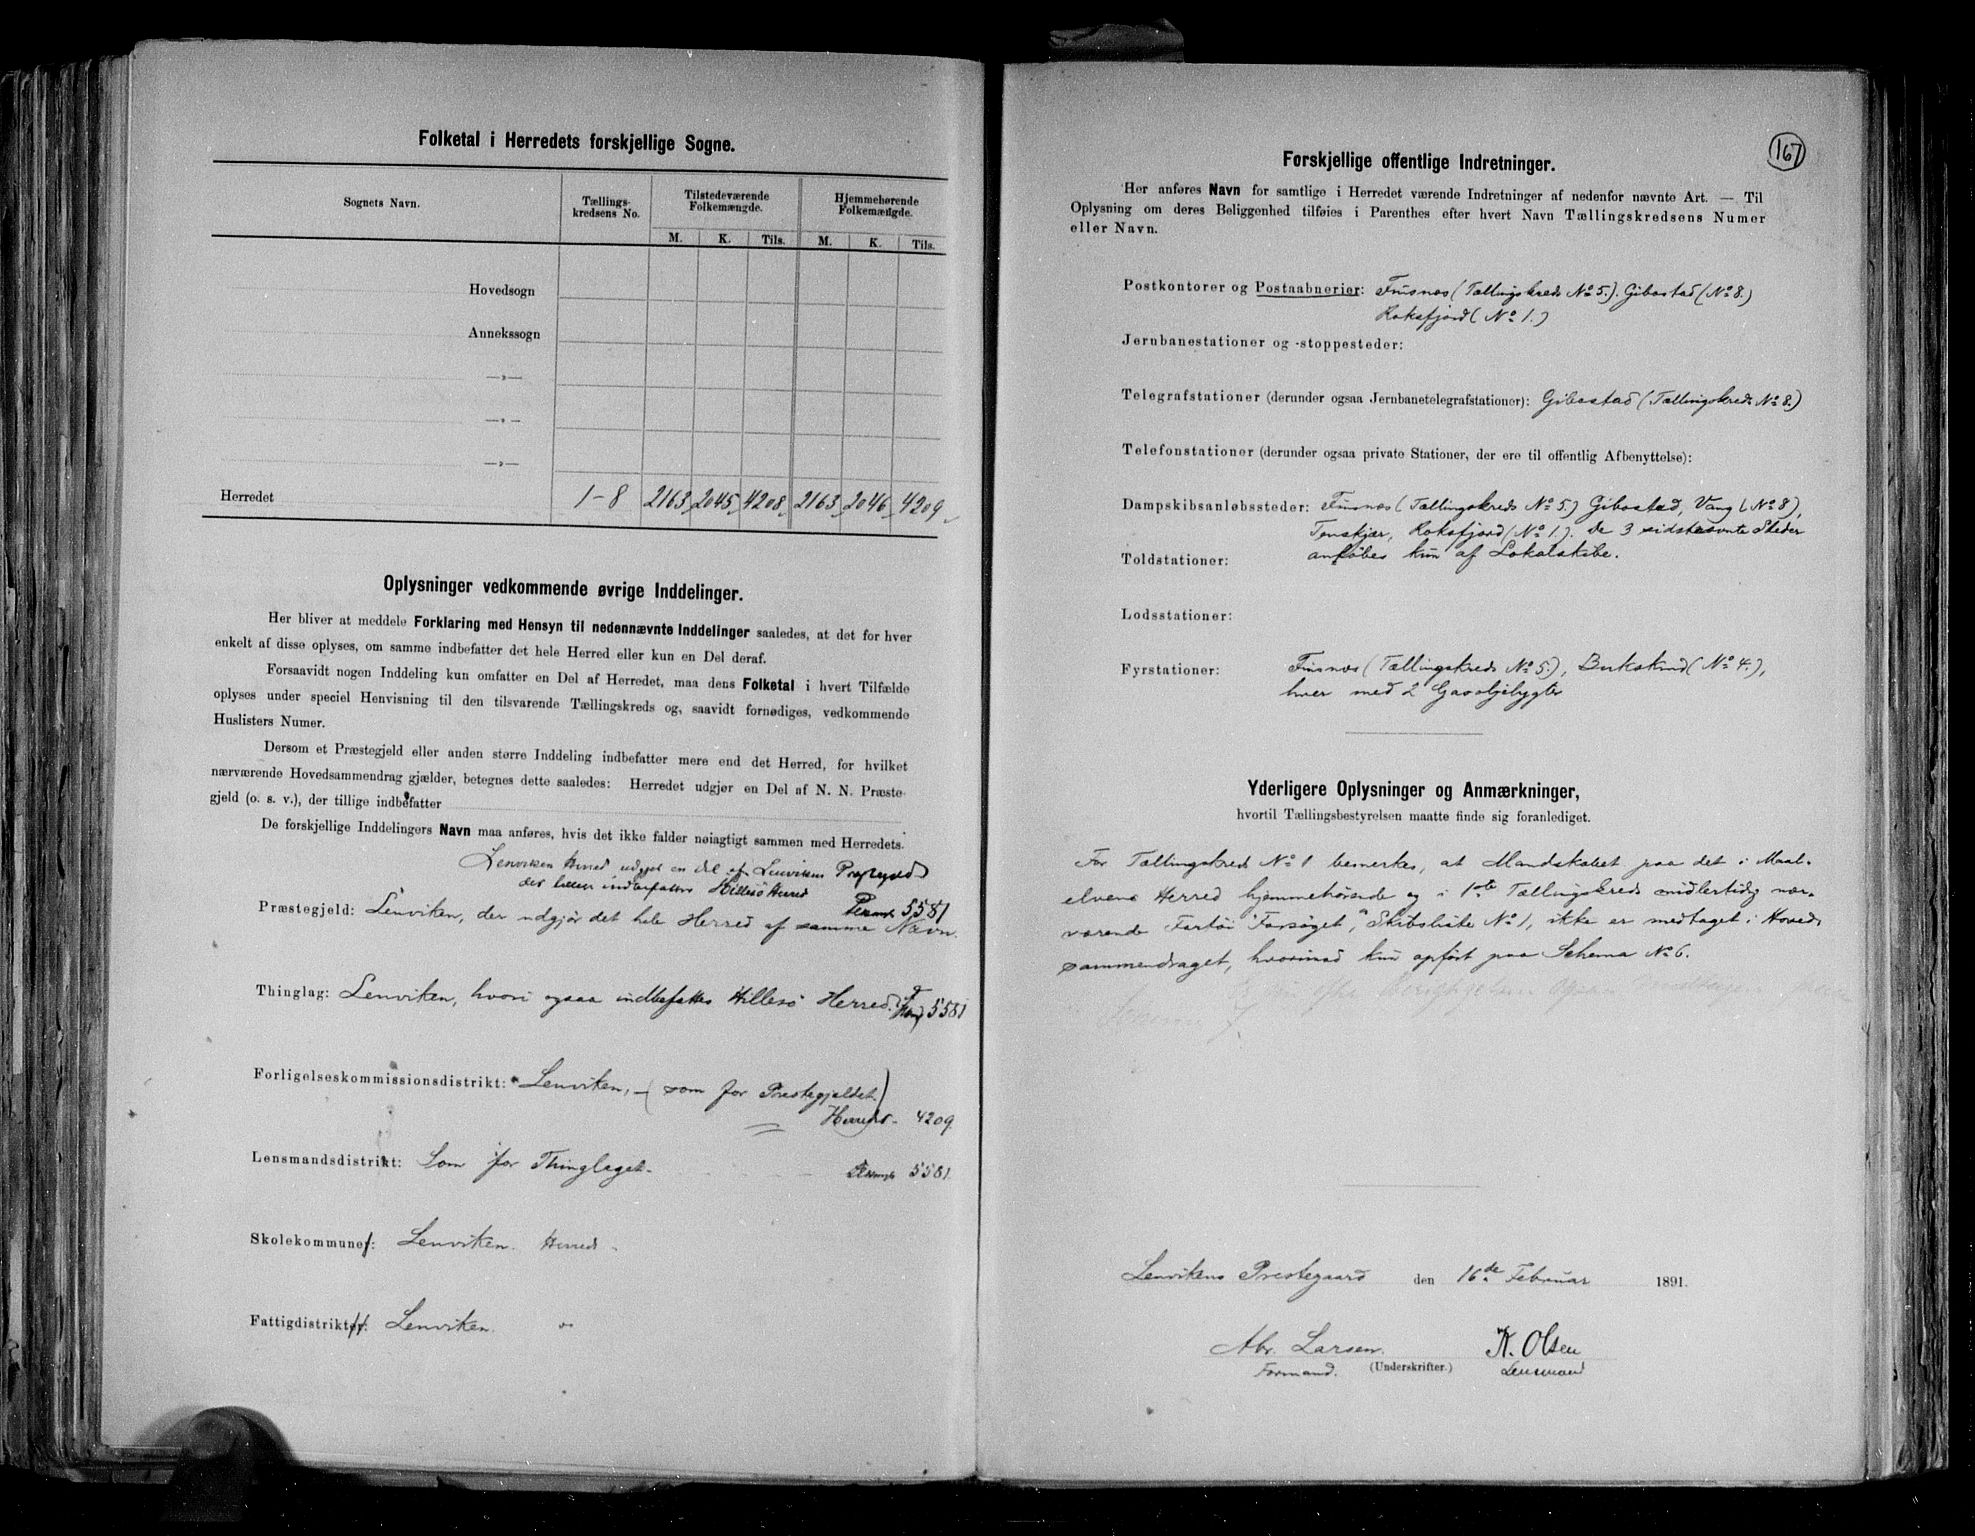 Folketal i Herredets forskjellige Sogne.
Sognets Navn. Tællings- kredsens No. Tilstedeværende Folkemængde. Hjemmehørende Folkemængde.
M. K. Tils. M. K. Tils.
Hovedsogn
Annekssogn
—„—
—„—
—„—
Herredet 1-8 2163 2045 4208 2163 2046 4209
Oplysninger vedkommende øvrige Inddelinger.
Her bliver at meddele Forklaring med Hensyn til nedennævnte Inddelinger saaledes, at det for hver
enkelt af disse oplyses, om samme indbefatter det hele Herred eller kun en Del deraf.
Forsaavidt nogen Inddeling kun omfatter en Del af Herredet, maa dens Folketal i hvert Tilfælde
oplyses under speciel Henvisning til den tilsvarende Tællingskreds og, saavidt fornødiges, vedkommende
Huslisters Numer.
Dersom et Præstegjeld eller anden større Inddeling indbefatter mere end det Herred, for hvilket
nærværende Hovedsammendrag gjælder, betegnes dette saaledes: Herredet udgjør en Del af N. N. Præste-
gjeld (o. s. v.), der tillige indbefatter
De forskjellige Inddelingers Navn maa anføres, hvis det ikke falder nøiagtigt sammen med Herredets.
Lenviken Herred udgjør en del af Lenvikens
der indbefatter Hillesö Herred
5581
Præstegjeld: Lenviken, der udgjør det hele Herred af samme Navn.
Thinglag: Lenviken, hvori ogsaa indbefattes Hillesö Herred. 5581
Forligelseskommissionsdistrikt: Lenviken, — (som for Prestegjeldet.)
Herredet 4209
Lensmandsdistrikt: Som for Thinglaget. 5581
Skolekommune: Lenviken Herred
Fattigdistrikter: Lenviken. "
167
Forskjellige offentlige Indretninger.
Her anføres Navn for samtlige i Herredet værende Indretninger af nedenfor nævnte Art. — Til
Oplysning om deres Beliggenhed tilføies i Parenthes efter hvert Navn Tællingskredsens Numer
eller Navn.
Postkontorer og Postaabnerier: Finsnes (Tællingskreds No 5.). Gibostad (No 8.)
Roksfjord (No 1.)
Jernbanestationer og -stoppesteder:
Telegrafstationer (derunder ogsaa Jernbanetelegrafstationer): Gibostad (Tællingskreds No 8.)
Telefonstationer (derunder ogsaa private Stationer, der ere til offentlig Afbenyttelse):
Dampskibsanløbssteder: Finsnes (Tællingskreds No 5.) Gibostad, Vang (No 8),
Tenskjær, Roksfjord (No 1). De 3 sidstnævnte Steder
anløbes kun af Lokalskibe.
Toldstationer:
Lodsstationer:
Fyrstationer: Finsnes (Tællingskreds No 5.), Bukskind (No 4.),
hver med 2 Gasoljelygter
Yderligere Oplysninger og Anmærkninger,
hvortil Tællingsbestyrelsen maatte finde sig foranlediget.
For Tællingskreds No 1 bemerkes, at Mandskabet paa det i Maal-
elvens Herred hjemmehørende og i 1ste Tællingskreds midlertidig nær-
værende Fartøi "Forsøget", Skibsliste No 1, ikke er medtaget i Hoved-
sammendraget, hvorimod kun opført paa Schema No 6.
Lenvikens Prestegaard den 16de Februar 1891.
Abr. Larsen. K. Olsen
Formand. (Underskrifter.) Lensmand